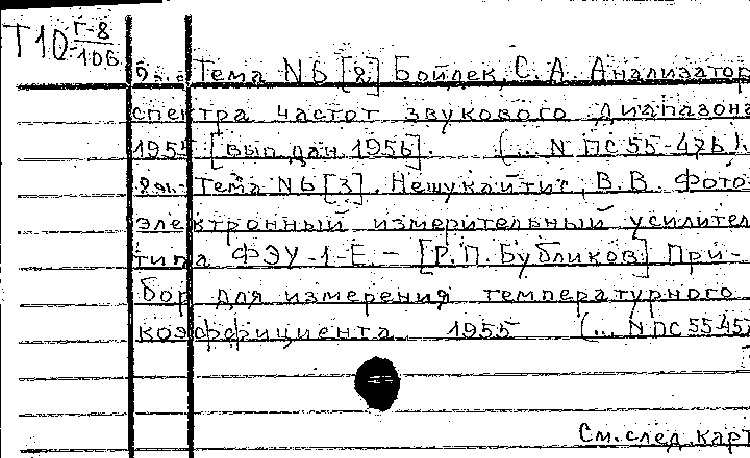 Т10 Г-8/10В
9 э. Тема N6 [2] Бойдек, С. А. Анализатор
спектра частот звукового диапазона
1955 [вып. дан. 1956]. (... N ПС 55-476).
2 э. - Тема N6 [3]. Нешукайтис, В. В. Фото-
электронный измерительный усилител
типа ФЭУ-1-Е - [Р. П. Бубликов] При-
бор для измерения температурного
коэффициента 1955 (... N ПС 55-457
См. след. карт